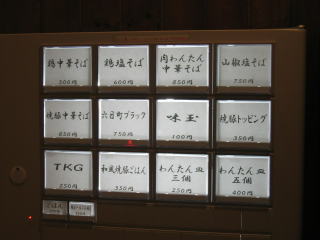 鶏中華そば
500円
鶏塩そば
600円
肉わんたん
中華そば
850円
山椒塩そば
750円
焼豚中華そば
850円
六日町ブラック
750円
味玉
100円
焼豚トッピング
350円
TKG
350円
和風焼豚ごはん
350円
わんたん皿
三個
250円
わんたん皿
五個
400円
ごはん